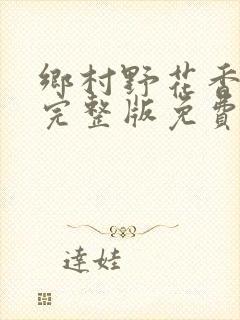 鄉村野花香
完整版免費
達娃